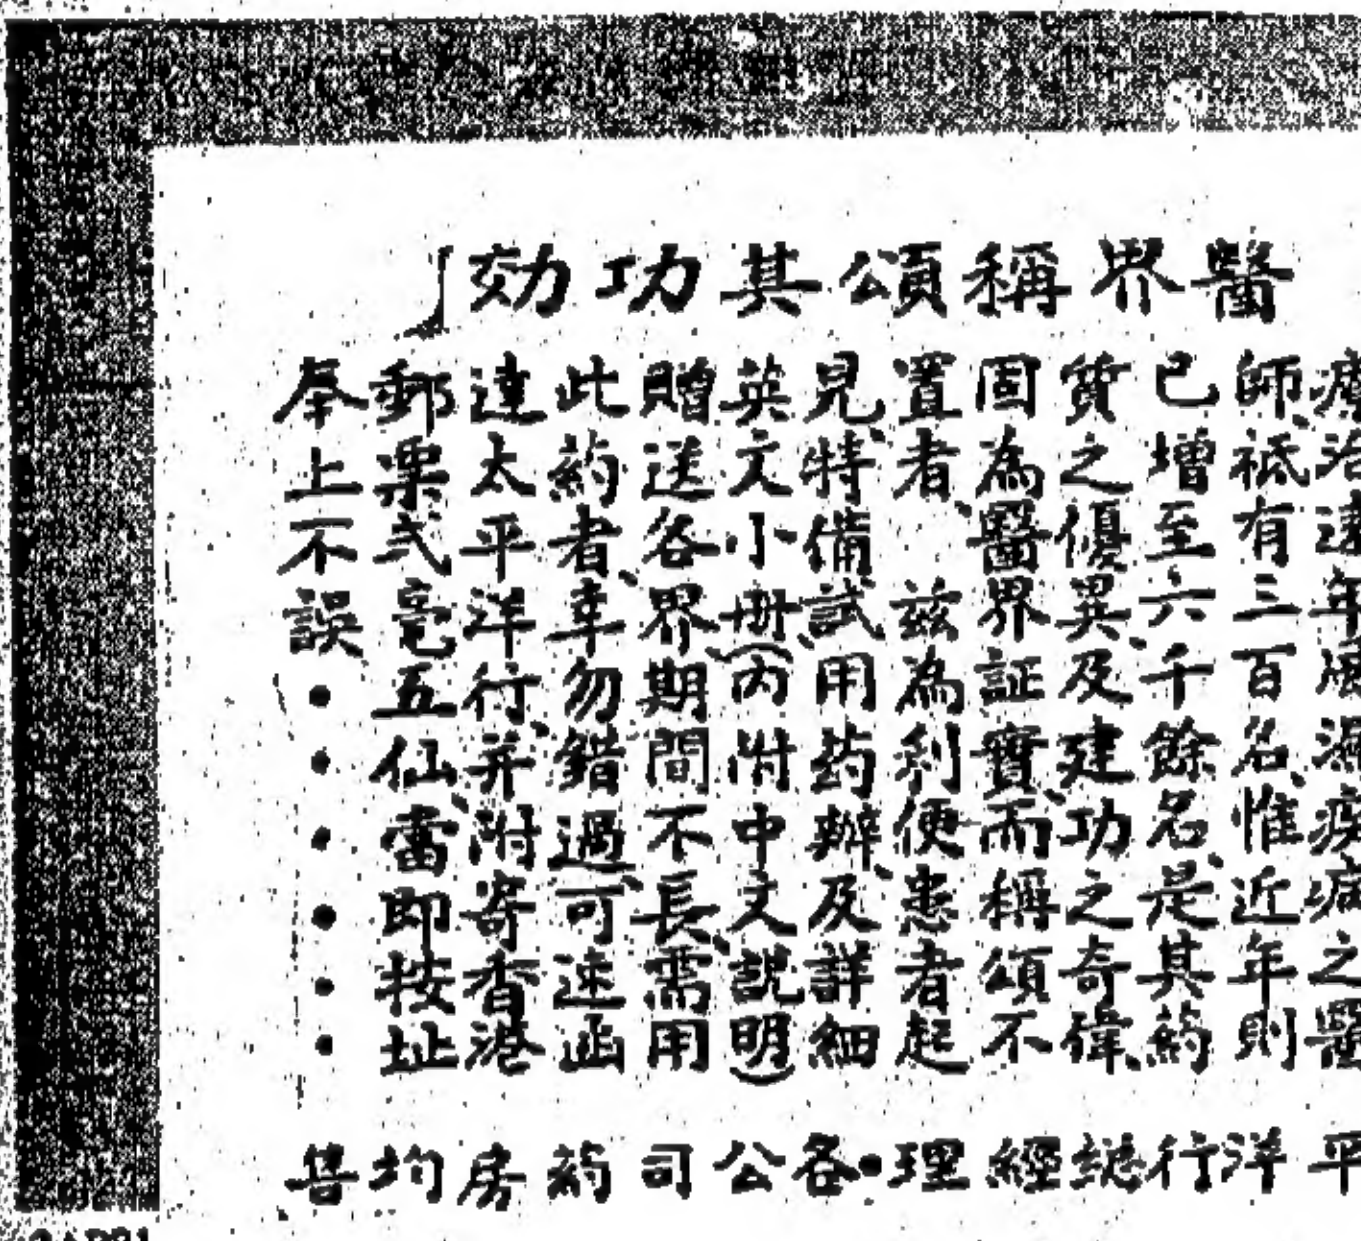 醫界稱頌其功効」
療治速年風濕疾病之醫
師、祗有三百名、惟近年則
已增至六千餘名、是其葯
質之優異、及建功之奇偉、
固為醫界証實、而稱頌不
置者、茲為利便患者起
見、特備試用葯辦、及詳細
英文小冊、(內附中文說明)
贈送各界、期間不長、需用
此葯者、幸勿錯過、可速函
達太平洋行、并附寄香港
郵票弍毫五仙、當即按址
奉上不誤・・・・・・
平洋行總經理・各公司葯房均